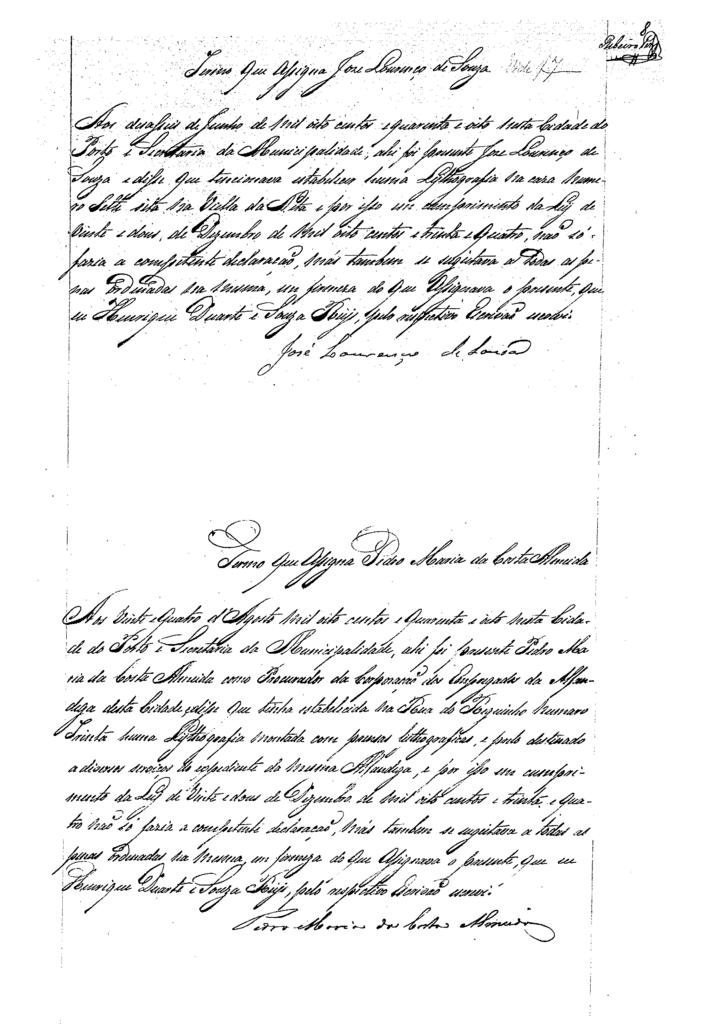 8
Ribeiro Per.ª
Termo que Assigna Jose Lourenço de Souza Vide 17
Aos desasseis de Junho de Mil oito centos e quarenta e oito nesta Cidade do
Porto e Secretaria da Municipalidade, ahi foi prezente Jose Lourenço de
Souza e disse que tencionava estabelecer huma Lythografia na caza Nume-
ro Sette sita na Viella da Neta e por isso em comprimento da Ley de
Vinte e dous, de Dezembro de Mil oito centos e trinta e quatro, não só
fazia a competente declaração, mas tambem se sugeitava a todas as pe-
nas Ordenadas na mesma, em firmeza do que Assignava o prezente, que
eu Henrique Duarte e Souza Reis, pelo respectivo Escrivão escrevi.
José Lourenço de Souza
Termo que Assigna Pedro Maria da Costa Almeida
Aos Vinte e quatro d'Agosto Mil oito centos e Quarenta e oito nesta Cida-
de do Porto e Secretaria da Municipalidade, ahi foi prezente Pedro Ma
ria da Costa Almeida como Procurador da Corporação dos Empregados da Alfan-
dega desta Cidade, e disse que tinha estabelecida na Rua do Numero
Trinta huma Lythografia montada com processos lithograficos, e prelo destinado
a diversos serviços do expediente da mesma Alfandega, e por isso em cumpri-
mento da Ley de Vinte e dous de Dezembro de Mil oito centos e trinta, e Qua-
tro não só fazia a competente declaração, mas tambem se sugeitava a todas as
penas Ordenadas na mesma, em firmeza do que Assignava o prezente, que eu
Henrique Duarte e Souza Reis, pelo respectivo Escrivão escrevi.
Pedro Maria da Costa Almeida